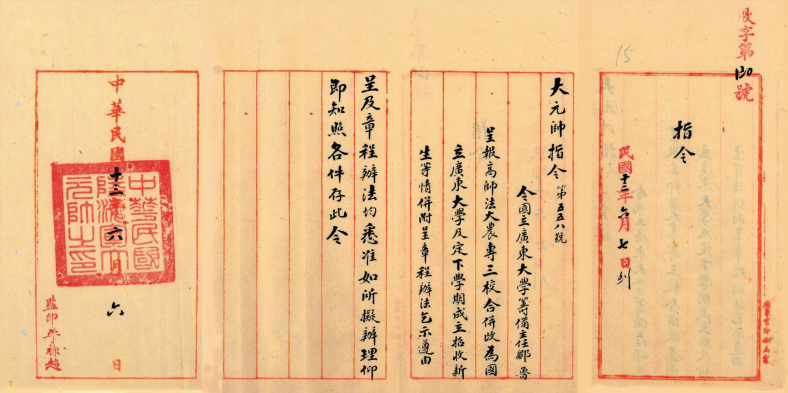 字第130號
15
指令
民國十三年六月七日到
大元帥指令 第五五八號
令國立廣東大學籌備主任鄒魯
呈報高師法大農專三校合併改為國
立廣東大學及定下學期成立招收新
生等情併附呈章程辦法乞示遵由
呈及章程辦法均悉准如所擬辦理仰
即知照各件存此令
中華民國十三年六月六日
中華民國
陸海軍大
元帥之印
監印李祿超